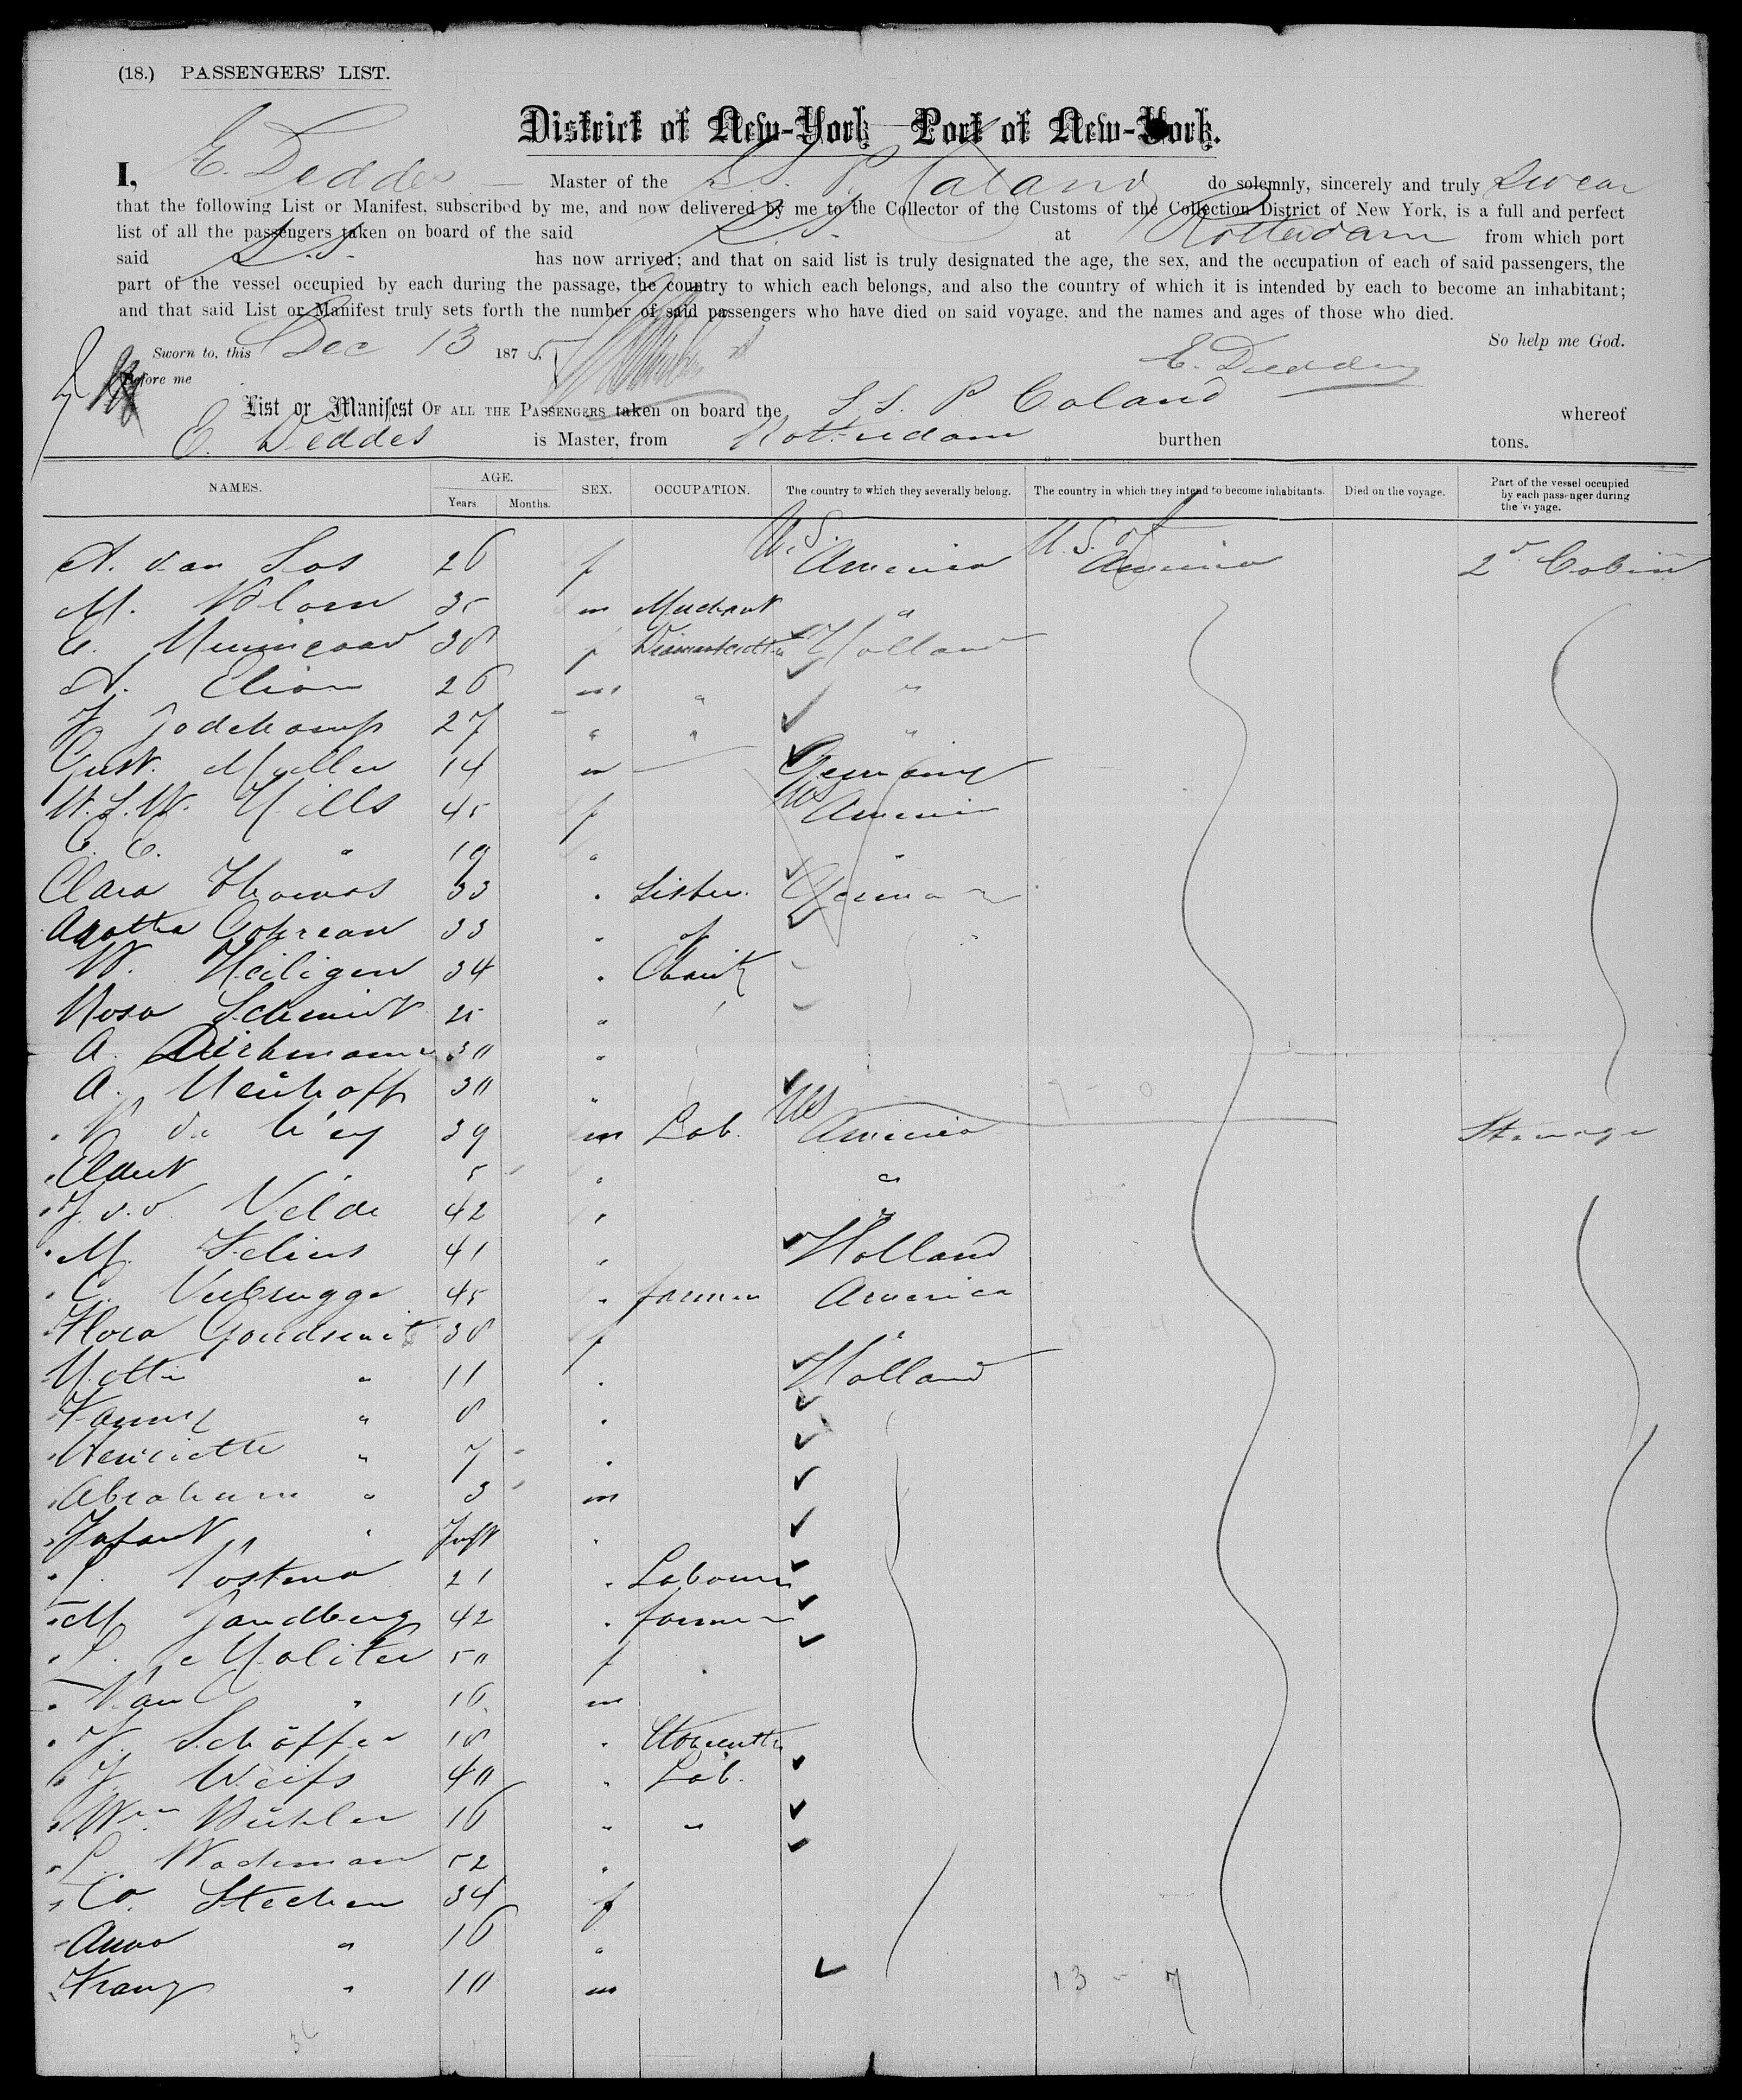 (18.) PASSENGERS' LIST.
District of New-York Port of New-York.
I, E. Deddes Master of the S.S. P. Caland do solemnly, sincerely and truly Swear
that the following List or Manifest, subscribed by me, and now delivered by me to the Collector of the Customs of the Collection District of New York, is a full and perfect
list of all the passengers taken on board of the said S.S. at Rotterdam from which port
said S.S. has now arrived; and that on said list is truly designated the age, the sex, and the occupation of each of said passengers, the
part of the vessel occupied by each during the passage, the country to which each belongs, and also the country of which it is intended by each to become an inhabitant;
and that said List or Manifest truly sets forth the number of said passengers who have died on said voyage, and the names and ages of those who died.
So help me God.
Sworn to, this Dec 13 1875
Before me
E. Deddes
List or Manifest OF ALL THE PASSENGERS taken on board the S S. P Caland whereof
E. Deddes is Master, from Rotterdam burthen tons.
NAMES. AGE. Years. Months. SEX. OCCUPATION. The country to which they severally belong. The country in which they intend to become inhabitants. Died on the voyage. Part of the vessel occupied by each passenger during the voyage.
A. van Los 26 f U.S. America U.S. of America 2d Cabin
M. Blom 35 m Merchant "
38 f Holland
A. Elion 26 m " "
27 " " "
Gust. Muller 14 m Germany
Hills 45 f US America
C. C. " 19 " "
Clara Thomas 33 " Sister German
33 " of
W. Heiligen 34 " Charity
Rosa Schmidt 25 "
A. Dirkmann 30 "
A. Neuhoff 30 "
39 m Lab. US America Steerage
5 " "
J. v. d. Velde 42 " "
M. Selius 41 " Holland
C. Verbrugge 45 " farmer America
Flora Goudsmit 38 f "
11 " Holland
Fanny " 8 "
Henriette " 7 "
Abraham " 3 m
Infant " Inft "
Postma 21 " Labourer
M. Zandberg 42 " farmer
50 f
16 m
J. Schöffer 18 "
J. Weifs 40 " Lab.
Wm. Buhler 16 " "
L. Wademan 52 "
Co. Stechen 34 f
Anna " 16 "
Franz " 10 m 13 - 7